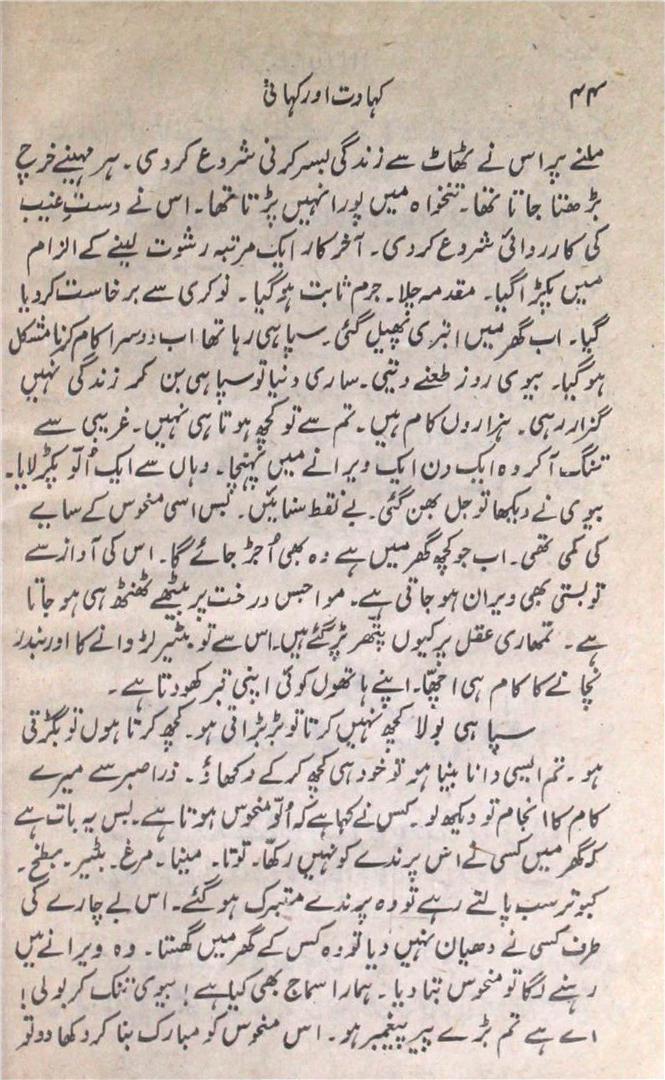 ۴۴ کہاوت اور کہانی
ملنے پر اس نے ٹھاٹ سے زندگی بسر کرنی شروع کر دی۔ ہر مہینے خرچ
بڑھتا جاتا تھا۔ تنخواہ میں پورا نہیں پڑتا تھا۔ اس نے دستِ غیب
کی کارروائی شروع کر دی۔ آخر کار ایک مرتبہ رشوت لینے کے الزام
میں پکڑا گیا۔ مقدمہ چلا۔ جرم ثابت ہوگیا۔ نوکری سے برخاست کر دیا
گیا۔ اب گھر میں ابتری پھیل گئی۔ سپاہی رہا تھا اب دوسرا کام کرنا مشکل
ہوگیا۔ بیوی روز طعنے دیتی۔ ساری دنیا تو سپاہی بن کر زندگی نہیں
گزار رہی۔ ہزاروں کام ہیں۔ تم سے تو کچھ ہوتا ہی نہیں۔ غریبی سے
تنگ آکر وہ ایک دن ایک ویرانے میں پہنچا۔ وہاں سے ایک اُلّو پکڑ لایا۔
بیوی نے دیکھا تو جل بھن گئی۔ بے نقط سنائیں۔ بس اسی منحوس کے سایے
کی کمی تھی۔ اب جو کچھ گھر میں ہے وہ بھی اُجڑ جائے گا۔ اس کی آواز سے
تو بستی بھی ویران ہو جاتی ہے۔ موا جس درخت پر بیٹھے ٹھنٹھ ہی ہو جاتا
ہے۔ تمھاری عقل پر کیوں پتھر پڑ گئے ہیں۔ اس سے تو بٹیر لڑوانے کا اور بندر
نچانے کا کام ہی اچھّا۔ اپنے ہاتھوں کوئی اپنی قبر کھودتا ہے۔
سپاہی بولا کچھ نہیں کرتا تو بڑبڑاتی ہو۔ کچھ کرتا ہوں تو بگڑتی
ہو۔ تم ایسی دانا بینا ہو تو خود ہی کچھ کر کے دکھاؤ۔ ذرا صبر سے میرے
کام کا انجام تو دیکھ لو۔ کس نے کہا ہے کہ اُلّو منحوس ہوتا ہے۔ بس یہ بات ہے
کہ گھر میں کسی نے اس پرندے کو نہیں رکھّا۔ توتا۔ مینا۔ مرغ۔ بٹیر۔ بطخ۔
کبوتر سب پالتے رہے تو وہ پرندے متبرک ہو گئے۔ اس بے چارے کی
طرف کسی نے دھیان نہیں دیا تو وہ کس کے گھر میں گھستا۔ وہ ویرانے میں
رہنے لگا تو منحوس بنا دیا۔ ہمارا سماج بھی کیا ہے! بیوی تنک کر بولی!
اے ہے تم بڑے پیر پیغمبر ہو۔ اس منحوس کو مبارک بنا کر دکھا دو تو